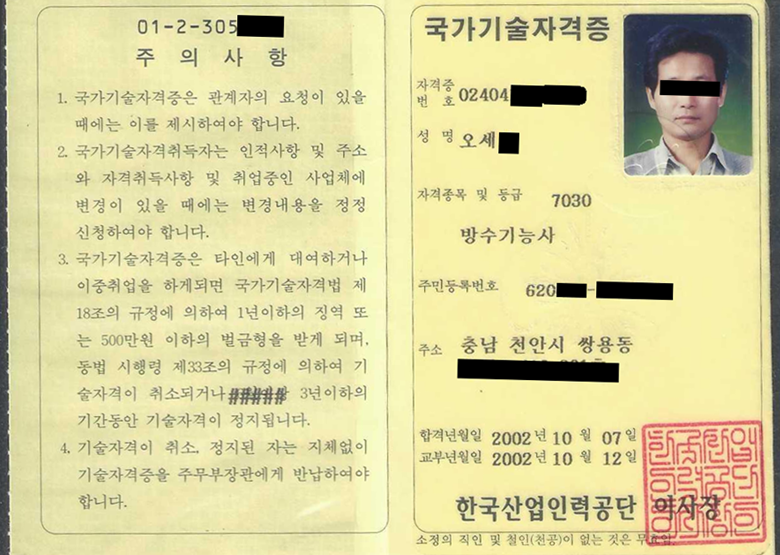 01-2-305
주 의 사 항
1. 국가기술자격증은 관계자의 요청이 있을
때에는 이를 제시하여야 합니다.
2. 국가기술자격취득자는 인적사항 및 주소
와 자격취득사항 및 취업중인 사업체에
변경이 있을 때에는 변경내용을 정정
신청하여야 합니다.
3. 국가기술자격증은 타인에게 대여하거나
이중취업을 하게되면 국가기술자격법 제
18조의 규정에 의하여 1년이하의 징역 또
는 500만원 이하의 벌금형을 받게 되며,
동법 시행령 제33조의 규정에 의하여 기
술자격이 취소되거나 ##### 3년이하의
기간동안 기술자격이 정지됩니다.
4. 기술자격이 취소, 정지된 자는 지체없이
기술자격증을 주무부장관에게 반납하여야
합니다.
국가기술자격증
자격증
번 호 02404
성 명 오세
자격종목 및 등급 7030
방수기능사
주민등록번호 620 -
주소 충남 천안시 쌍용동
합격년월일 2002 년 10 월 07 일
교부년월일 2002 년 10 월 12 일
한국산업인력공단 이사장
소정의 직인 및 철인(천공)이 없는 것은 무효임